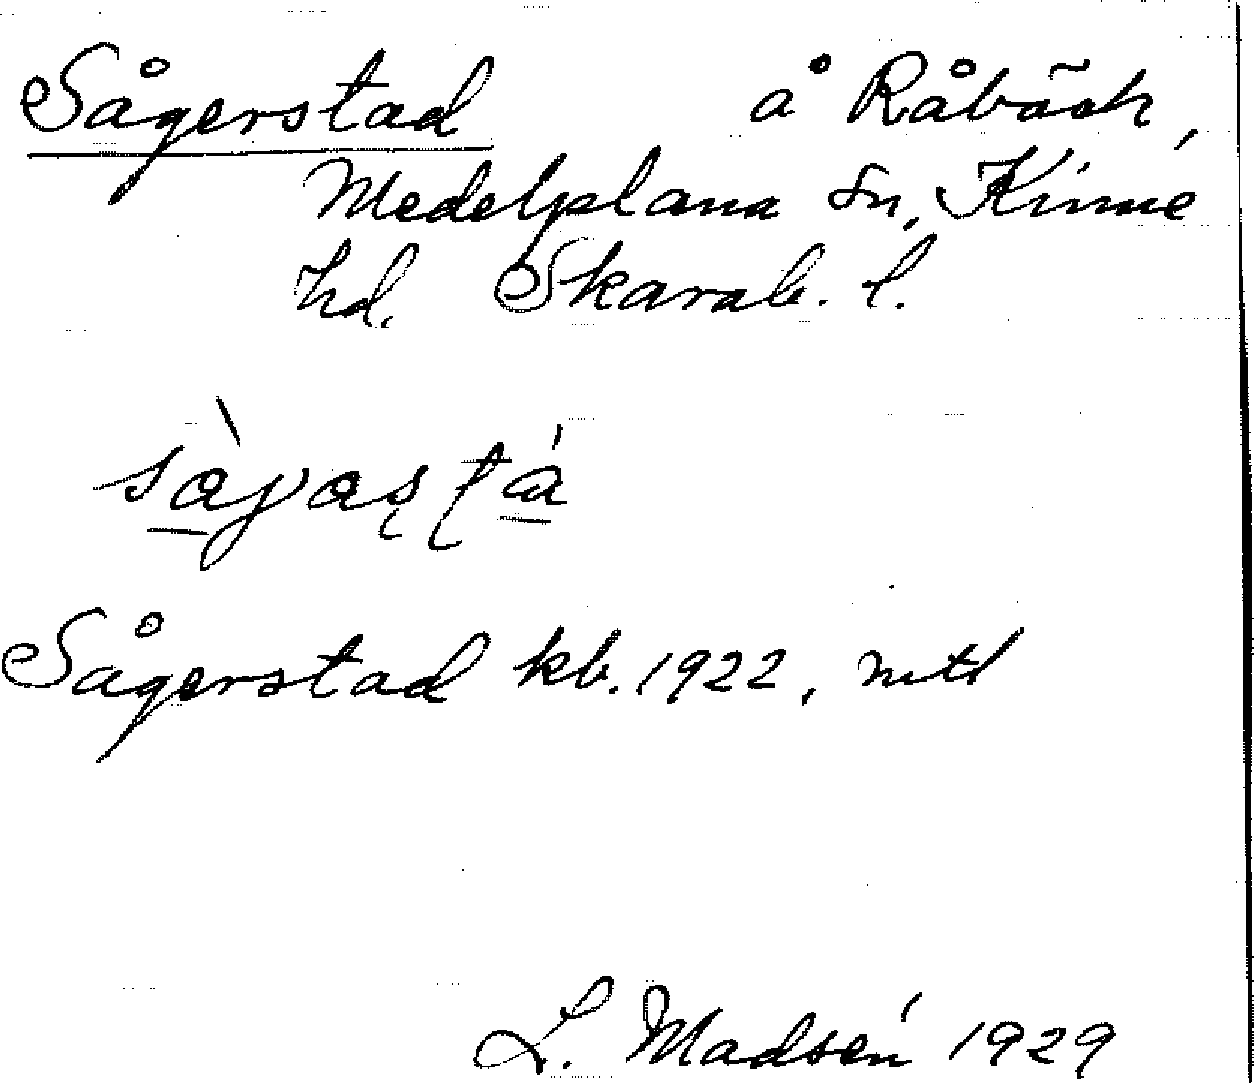 Sågerstad å Råbäck,
Medelplana sn, Kinne
hd. Skarab. l.
Sågerstad kb. 1922, mtl
L. Madsén 1929